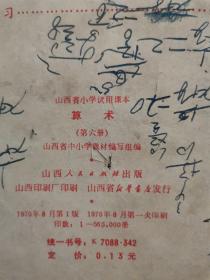 习
山西省小学试用课本
算术
(第六册)
山西省中小学教材编写组编
山西人民出版社出版
山西印刷厂印刷 山西省新华书店发行
1970年8月第1版 1970年8月第一次印刷
印数:1—565,000册
统一书号:K7088·342
定价:0.13元